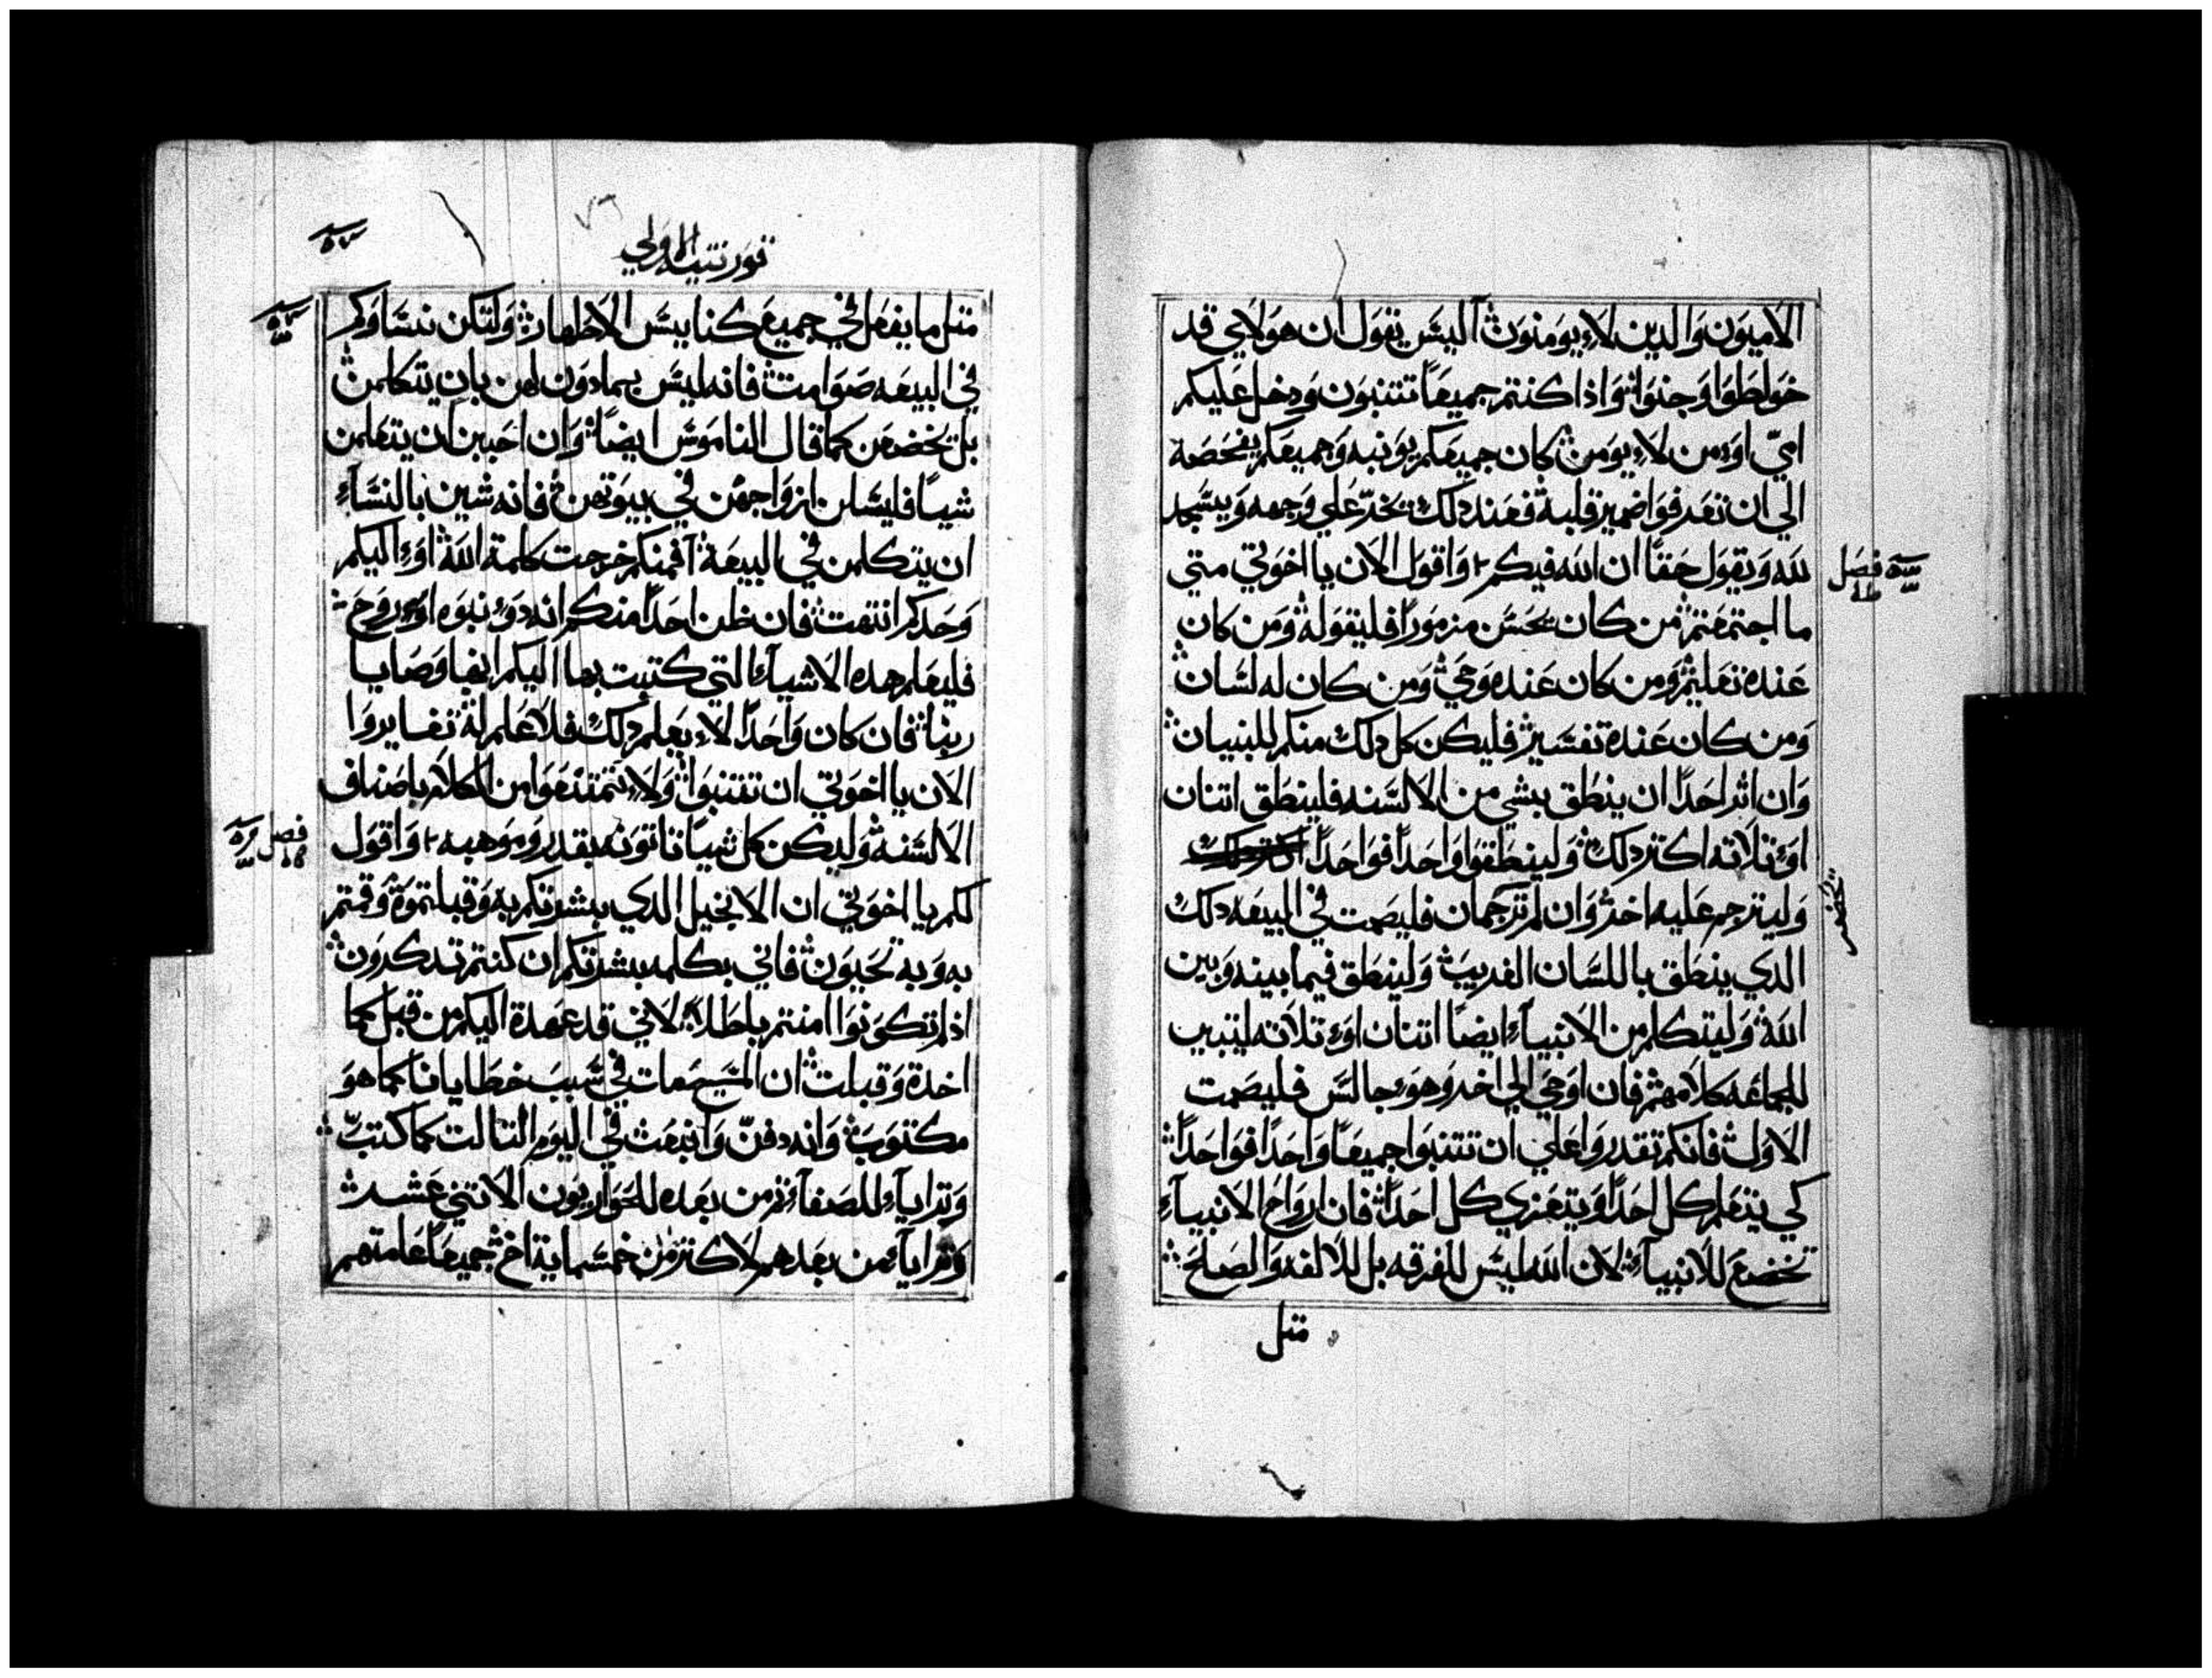 الاميون والدين لا يومنون اليس يقول ان هولاي قد
خولطوا وجنوا واذا كنتم جميعًا تتنبون ودخل عليكم
اميّ او من لا يومن كان جميعكم يونبه وجميعكم يفحصه
الي ان تعرفوا ضمير قلبه فعند دلك يخرّ علي وجهه ويسجد
لله ويقول حقًا ان الله فيكم واقول الان يا اخوتي متي
فصل
ما اجتمعتم من كان يحسن مزمورًا فليقوله ومن كان
عنده تعليم ومن كان عنده وحي ومن كان له لسان
ومن كان عنده تفسير فليكن كل دلك منكم للبنيان
وان اتر احدًا ان ينطق بشي من الالسنه فلينطق اتنان
او تلاته اكتر دلك ولينطقوا واحدًا فواحدًا
وليترجم عليه اخر وان لم ترجمان فليصمت في البيعه دلك
الدي ينطق باللسان الغريب ولينطق فيما بينه وبين
الله وليتكلم من الانبياء ايضًا اتنان او تلاته ليتبين
للجماعه كلامهم فان اوحي الي اخر وهو جالس فليصمت
الاول فانكم تقدروا علي ان تتنبوا جميعًا واحدًا فواحدًا
كي يتعلم كل احدًا ويتعزي كل احدًا فان ارواح الانبياء
تخضع للانبياء لان الله ليس للفرقه بل للالفه والصلح
متل
قورنتيه الاولي
متل ما يفعل في جميع كنايس الاطهار ولتكن نساوكم
في البيعه صوامت فانه ليس بمادون لهن بان يتكلمن
بل تخضعن كما قال الناموس ايضًا وان احببن ان يتعلمن
شيا فليسلن ازواجهن في بيوتهن فانه شين بالنساء
ان يتكلمن في البيعه افمنكم خرجت كلمة الله او اليكم
وحدكم انتهت فان ظن احدًا منكم انه دو نبوه او روح
فليعلم هده الاشياء التي كتبت بها اليكم انها وصايا
ربنا فان كان واحدًا لا يعلم دلك فلا علم له تغايروا
الان يا اخوتي ان تتنبوا ولا تمتنعوا من الكلام باصناف
الالسنه وليكن كل شيا تاتونه بقدر وموهبه واقول
فصل
لكم يا اخوتي ان الانجيل الدي بشرتكم به وقبلتموه وقمتم
به وبه تحيون فاني بكلمه بشرتكم ان كنتم تدكرون
اد لم تكونوا امنتم باطلًا لاني قد عهدة اليكم من قبل كما
اخدة وقبلت ان المسيح مات في سبب خطايانا كما هو
مكتوب وانه دفنّ وانبعت في اليوم التالت كما كتبّ
وتراياء للصفاء تم من بعده للحواريون الاتني عشر
وتراياء من بعدهم لاكتر من خمسماية اخ جميعًا عامتهم